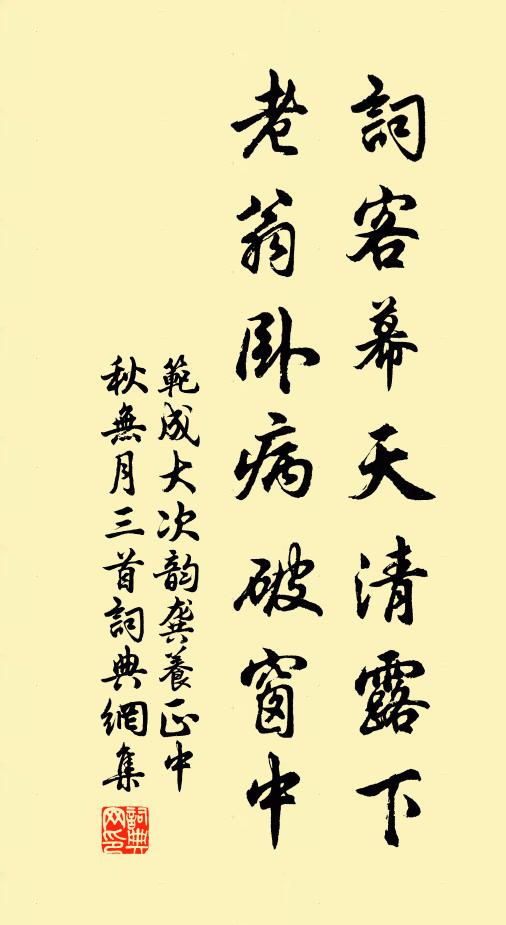 詞客幕天清露下
老翁卧病破窗中
範成大次韵龔養正中
秋無月三首詞典網集
詞典
网印